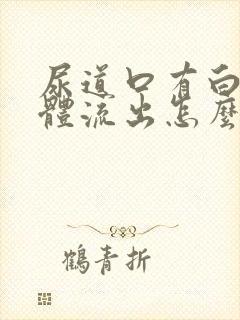 尿道口有白
體流出怎麼
鶴青折